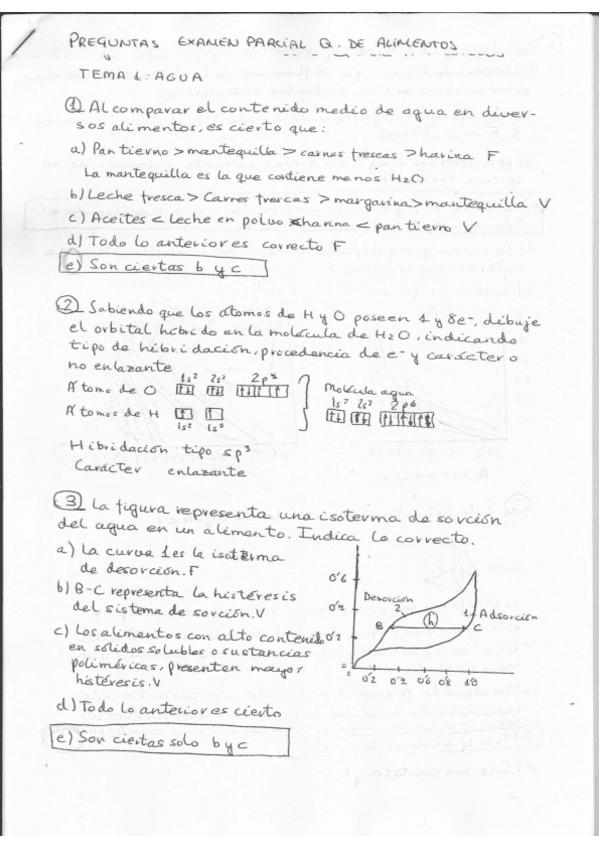 PREGUNTAS EXAMEN PARCIAL Q. DE ALIMENTOS
TEMA 1: AGUA
① Al comparar el contenido medio de agua en diver-
sos alimentos, es cierto que:
a) Pan tierno > mantequilla > carnes frescas > harina F
La mantequilla es la que contiene menos H2O
b) Leche fresca > Carnes frescas > margarina > mantequilla V
c) Aceites < leche en polvo < harina < pan tierno V
d) Todo lo anterior es correcto F
e) Son ciertas b y c
② Sabiendo que los átomos de H y O poseen 1 y 8e-, dibuje
el orbital híbrido en la molécula de H2O, indicando
tipo de hibridación, procedencia de e- y carácter o
no enlazante
1s² 2s² 2p⁴
Átomo de O
Molécula agua
1s² 2s² 2p⁶
Átomos de H
1s² 1s²
Hibridación tipo sp³
Carácter enlazante
③ La figura representa una isoterma de sorción
del agua en un alimento. Indica lo correcto.
a) La curva 1 es la isoterma
de desorción. F
b) B-C representa la histéresis
del sistema de sorción. V
c) Los alimentos con alto contenido
en sólidos solubles o sustancias
poliméricas, presentan mayor
histéresis. V
d) Todo lo anterior es cierto
e) Son ciertas solo b y c
0'6
0'4
0'2
0
Desorción
2
B
h
1
Adsorción
C
0'2 0'4 0'6 0'8 1'0